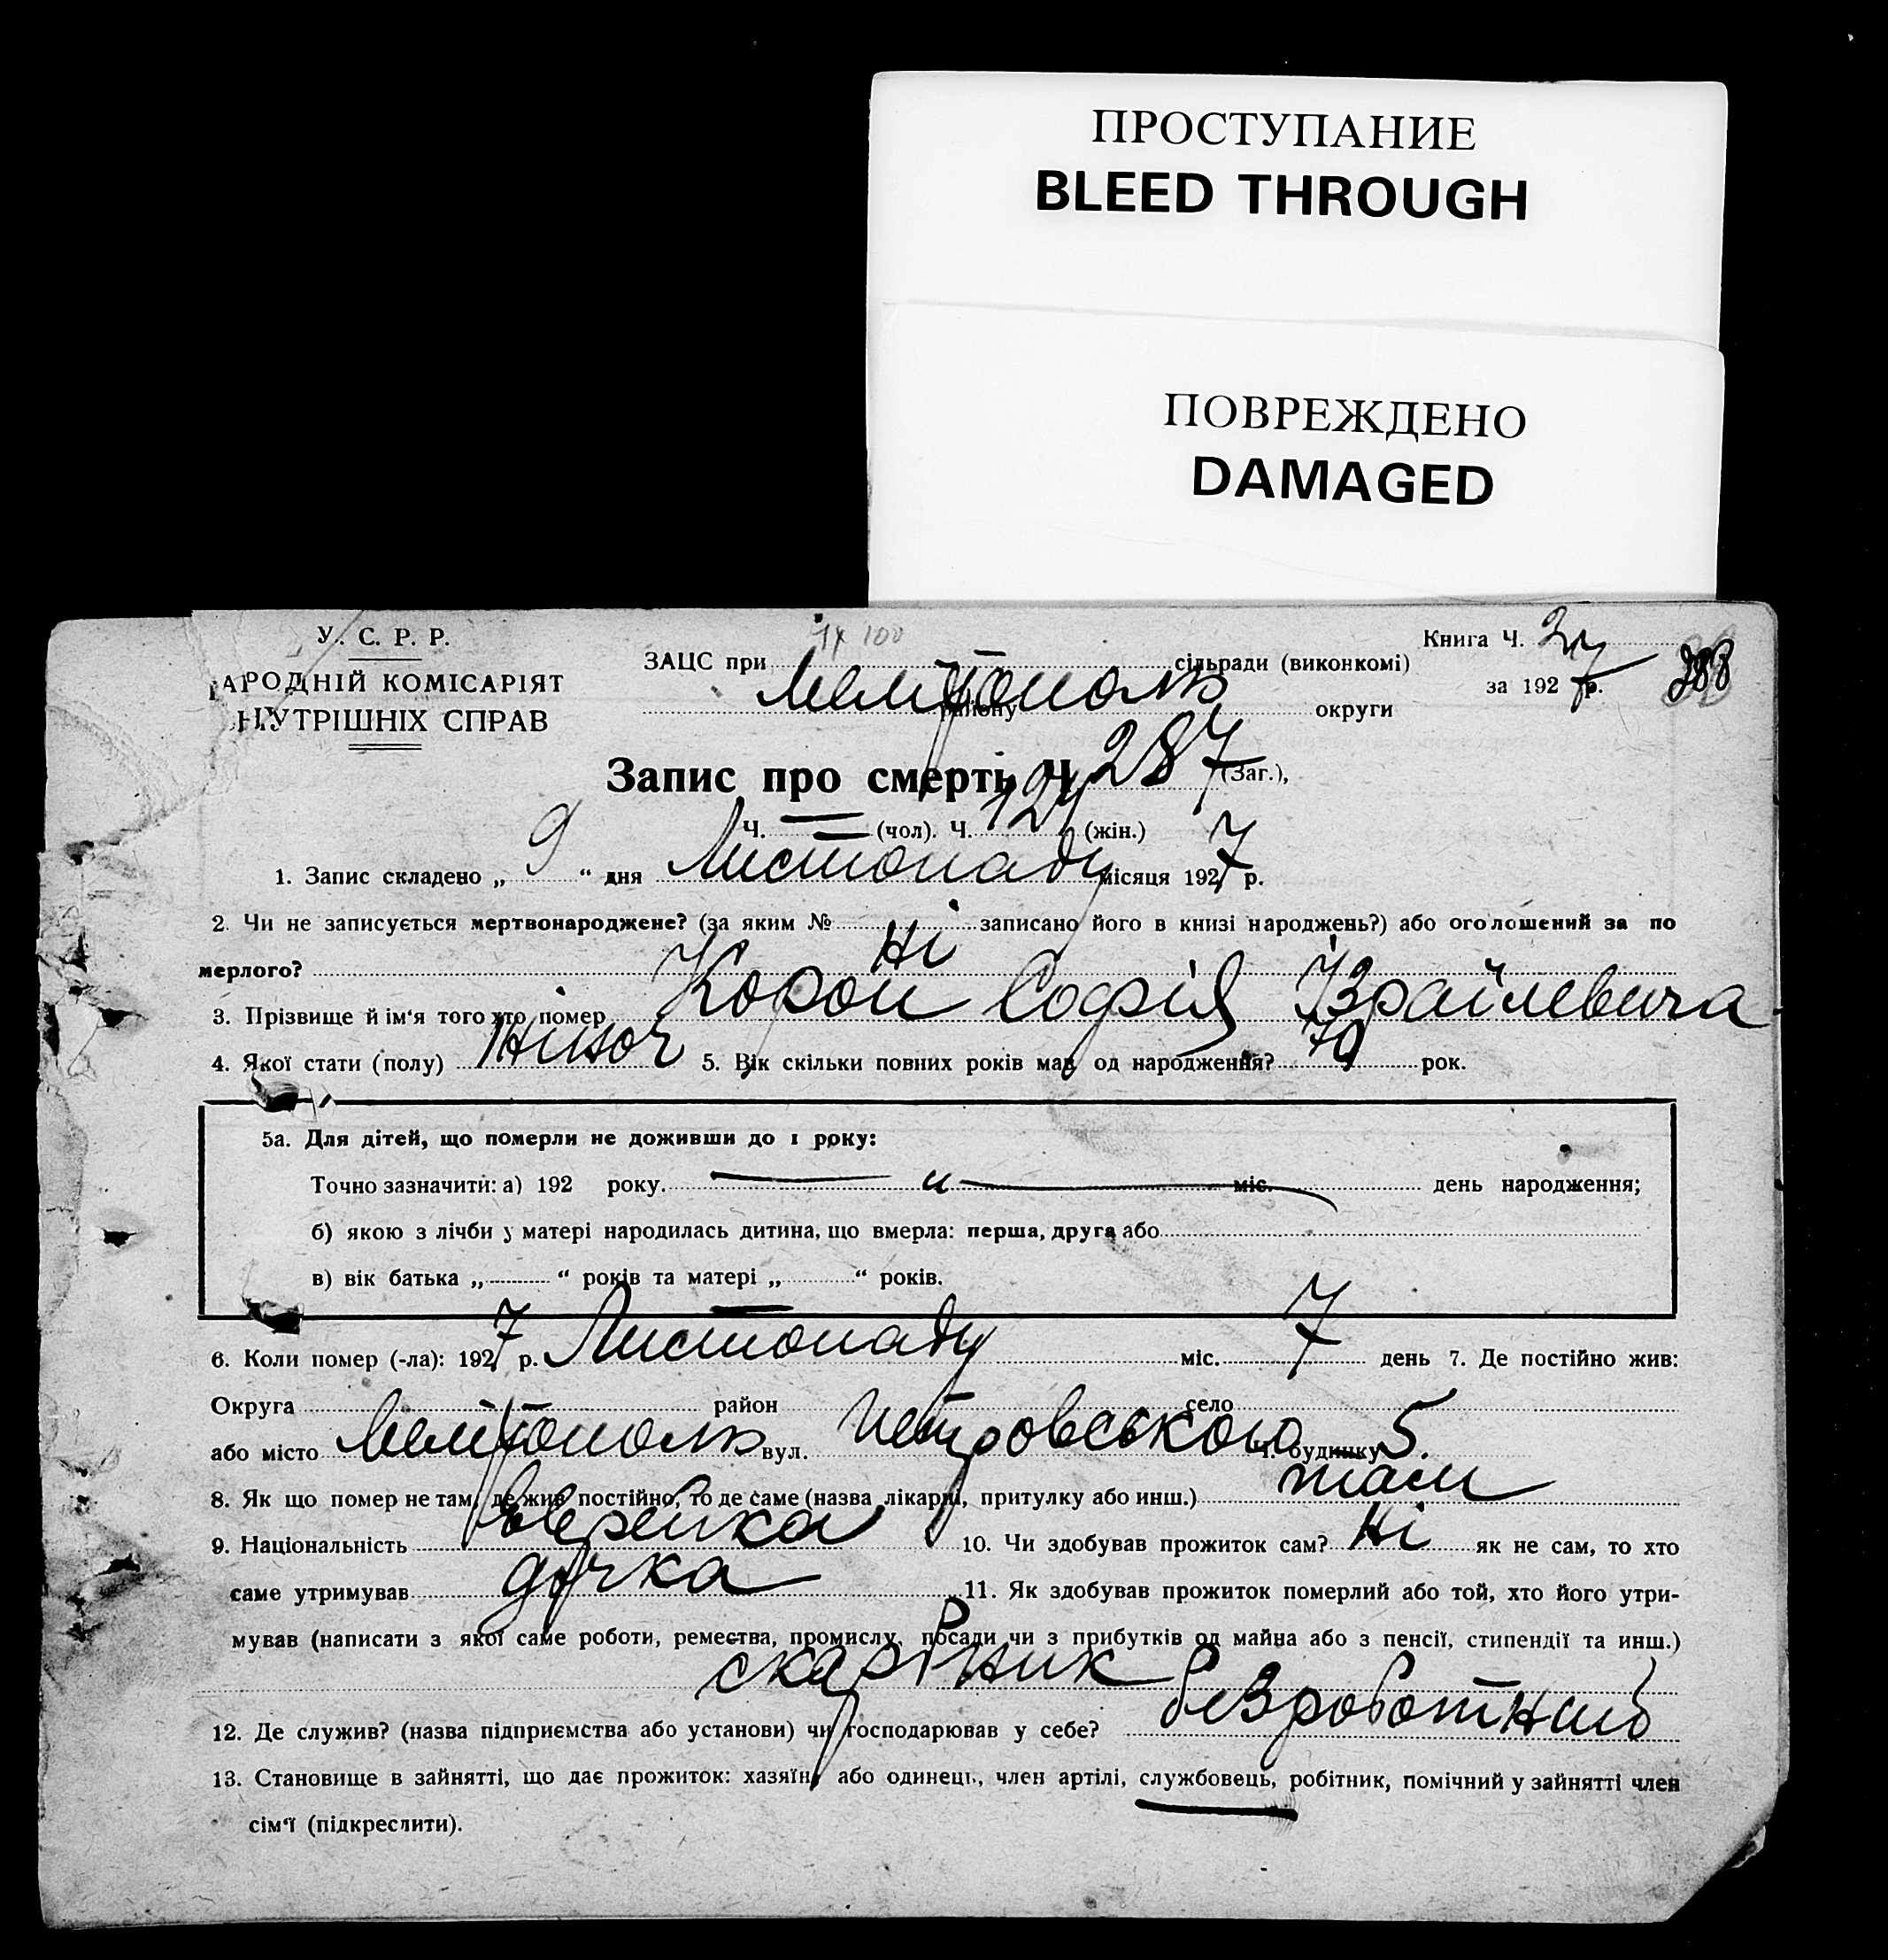 ПРОСТУПАНИЕ
BLEED THROUGH
ПОВРЕЖДЕНО
DAMAGED
У. С. Р. Р.
АРОДНІЙ КОМІСАРІЯТ
НУТРІШНІХ СПРАВ
Книга Ч. 27
за 1927 р. 288
ЗАЦС при сільради (виконкомі)
Мелітополь
району округи
Запис про смерть Ч. 287 (Заг.),
Ч. — (чол). Ч. 124 (жін.)
1. Запис складено „ 9 “ дня Листопаду місяця 1927 р.
2. Чи не записується мертвонароджене? (за яким № записано його в книзі народжень?) або оголошений за по
мерлого? Ні
3. Прізвище й ім‘я того хто помер Софія Ізраїлевича
4. Якої стати (полу) Жіноч 5. Вік скільки повних років мав од народження? 70 рок.
5а. Для дітей, що померли не доживши до 1 року:
Точно зазначити: а) 192 року. міс. день народження;
б) якою з лічби у матері народилась дитина, що вмерла: перша, друга або
в) вік батька „ “ років та матері „ “ років.
6. Коли помер (-ла): 1927 р. Листопаду міс. 7 день 7. Де постійно жив:
Округа район село
або місто Мелітополь вул. Петровського Ч. будинку 5.
8. Як що помер не там, де жив постійно, то де саме (назва лікарні, притулку або инш.) там
9. Національність Еврейка 10. Чи здобував прожиток сам? Ні як не сам, то хто
саме утримував дочка 11. Як здобував прожиток померлий або той, хто його утри-
мував (написати з якої саме роботи, ремества, промислу, посади чи з прибутків од майна або з пенсії, стипендії та инш.)
12. Де служив? (назва підприємства або установи) чи господарював у себе? безроботний
13. Становище в зайнятті, що дає прожиток: хазяїн, або одинець, член артілі, службовець, робітник, помічний у зайнятті член
сім‘ї (підкреслити).